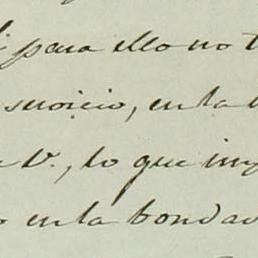 para ello no t
servicio, en la
V., lo que imp
o en la bondad